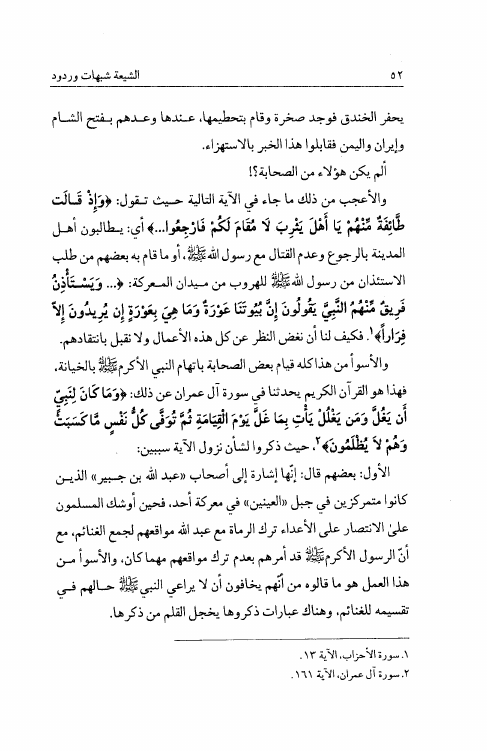 ٥٢ الشيعة شبهات وردود
يحفر الخندق فوجد صخرة وقام بتحطيمها، عندها وعدهم بفتح الشام
وإيران واليمن فقابلوا هذا الخبر بالاستهزاء.
ألم يكن هؤلاء من الصحابة؟!
والأعجب من ذلك ما جاء في الآية التالية حيث تقول: ﴿وَإِذْ قَالَت
طَّائِفَةٌ مِّنْهُمْ يَا أَهْلَ يَثْرِبَ لَا مُقَامَ لَكُمْ فَارْجِعُوا...﴾ أي: يطالبون أهل
المدينة بالرجوع وعدم القتال مع رسول الله ﷺ، أو ما قام به بعضهم من طلب
الاستئذان من رسول الله ﷺ للهروب من ميدان المعركة: ﴿... وَيَسْتَأْذِنُ
فَرِيقٌ مِّنْهُمُ النَّبِيَّ يَقُولُونَ إِنَّ بُيُوتَنَا عَوْرَةٌ وَمَا هِيَ بِعَوْرَةٍ إِن يُرِيدُونَ إِلاَّ
فِرَاراً﴾١. فكيف لنا أن نغض النظر عن كل هذه الأعمال ولا نقبل بانتقادهم.
والأسوأ من هذا كله قيام بعض الصحابة باتهام النبي الأكرم ﷺ بالخيانة،
فهذا هو القرآن الكريم يحدثنا في سورة آل عمران عن ذلك: ﴿وَمَا كَانَ لِنَبِيٍّ
أَن يَغُلَّ وَمَن يَغْلُلْ يَأْتِ بِمَا غَلَّ يَوْمَ الْقِيَامَةِ ثُمَّ تُوَفَّى كُلُّ نَفْسٍ مَّا كَسَبَتْ
وَهُمْ لاَ يُظْلَمُونَ﴾٢، حيث ذكروا لشأن نزول الآية سببين:
الأول: بعضهم قال: إنّها إشارة إلى أصحاب «عبد الله بن جبير» الذين
كانوا متمركزين في جبل «العينين» في معركة أحد، فحين أوشك المسلمون
على الانتصار على الأعداء ترك الرماة مع عبد الله مواقعهم لجمع الغنائم، مع
أنّ الرسول الأكرم ﷺ قد أمرهم بعدم ترك مواقعهم مهما كان، والأسوأ من
هذا العمل هو ما قالوه من أنّهم يخافون أن لا يراعي النبي ﷺ حالهم في
تقسيمه للغنائم، وهناك عبارات ذكروها يخجل القلم من ذكرها.
١. سورة الأحزاب، الآية ١٣.
٢. سورة آل عمران، الآية ١٦١.